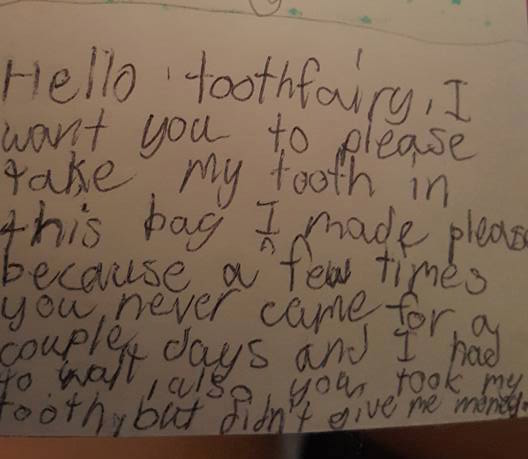 Hello toothfairy, I
want you to please
take my tooth in
this bag I made please
because a few times
you never came for a
couple days and I had
to wait, also you took my
tooth, but didn't give me money.